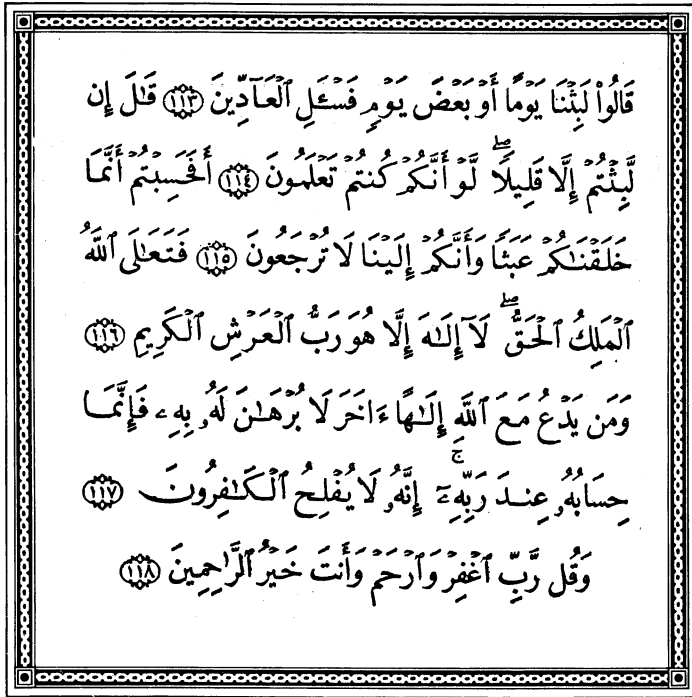 قَالُوا۟ لَبِثْنَا يَوْمًا أَوْ بَعْضَ يَوْمٍ فَسْـَٔلِ ٱلْعَآدِّينَ ١١٣ قَـٰلَ إِن
لَّبِثْتُمْ إِلَّا قَلِيلًا ۖ لَّوْ أَنَّكُمْ كُنتُمْ تَعْلَمُونَ ١١٤ أَفَحَسِبْتُمْ أَنَّمَا
خَلَقْنَـٰكُمْ عَبَثًا وَأَنَّكُمْ إِلَيْنَا لَا تُرْجَعُونَ ١١٥ فَتَعَـٰلَى ٱللَّهُ
ٱلْمَلِكُ ٱلْحَقُّ ۖ لَآ إِلَـٰهَ إِلَّا هُوَ رَبُّ ٱلْعَرْشِ ٱلْكَرِيمِ ١١٦
وَمَن يَدْعُ مَعَ ٱللَّهِ إِلَـٰهًا ءَاخَرَ لَا بُرْهَـٰنَ لَهُۥ بِهِۦ فَإِنَّمَا
حِسَابُهُۥ عِندَ رَبِّهِۦٓ ۚ إِنَّهُۥ لَا يُفْلِحُ ٱلْكَـٰفِرُونَ ١١٧
وَقُل رَّبِّ ٱغْفِرْ وَٱرْحَمْ وَأَنتَ خَيْرُ ٱلرَّٰحِمِينَ ١١٨